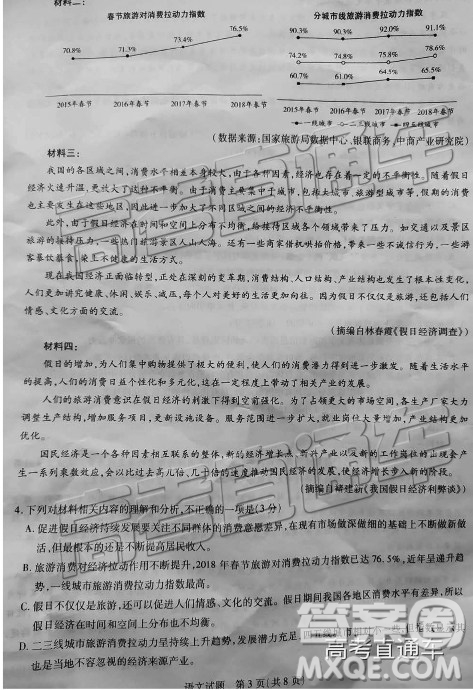 材料二：
春节旅游对消费拉动力指数
分城市线旅游消费拉动力指数
70.8%
71.3%
73.4%
76.5%
90.3% 90.3% 92.0% 91.1%
74.2% 74.8% 75.8% 78.6%
60.7% 61.0% 64.5% 65.5%
2015年春节 2016年春节 2017年春节 2018年春节
2015年春节 2016年春节 2017年春节 2018年春节
一线城市 二三线城市 四五线城市
(数据来源：国家旅游局数据中心、银联商务、中商产业研究院)
材料三：
我国的各区域之间，消费水个相差本身较大，由于各种因素，经济也存在着一定的不平衡性。随着假日
经济火速升温，更放大了这种不平衡。由于消费主要集中于城市，包括大城市、旅游型城市等，假期的消费
也主要发生在这些地区，因此进一步加大了不同区域之间的经济不平衡性。
此外，由于假日经济在时间和空间上分布不均衡，给接待区域各个领域带来了压力。如交通以及景区
旅游的接待压力，一些热门旅游景区人山人海。还有一些商家借机哄抬价格，带来一些不诚信行为，一些游
客暴饮暴食，染上不健康的生活方式。
现在我国经济正面临转型，正处在深刻的变革期，消费结构、人口结构、产业结构也发生了根本性变化，
人们更加讲究健康、休闲、娱乐、减压，每个人对美好的生活更加向往。因为假日不仅仅是旅游，还包括人们
情感、文化方面的交流。
(摘编自林春霞《假日经济调查》)
材料四：
假日的增加，为人们集中购物提供了极大的便利，使人们的消费潜力得到进一步激发。随着生活水平
的提高，人们的消费日益个性化和多元化，这在一定程度上带动了相关产业的发展。
人们的旅游消费意识在假日经济的刺激下得到空前强化。为了占领更大的市场空间，各生产厂家大力
调整生产结构，增加服务项目，更新设施设备。服务范围进一步扩大，就业岗位大量增加，产业结构更加
优化。
国民经济是一个各种因素相互联系的整体，新的经济增长点、新兴产业以及新的工作岗位的出现会产
生一系列乘数效应，会以比过去高几倍、几十倍的速度推动国民经济的发展，使经济增长步入新的阶段。
建新《我国假日经济利弊谈》)
4. 下列对材料相关内容的理解和分析，不正确的一项是(3分)
A. 促进假日经济持续发展要关注不同群体的消费意愿差异，在现有市场做深做细的基础上不断做新做
活，但根本的还是不断提高居民收入。
B. 旅游消费对经济拉动作用不断提升，2018年春节旅游消费拉动力指数已达76.5%，近年呈递升趋
势，一线城市旅游消费拉动力指数最高。
C. 假日不仅仅是旅游，还可以促进人们情感、文化的交流。假日期间我国各地区消费水平有差异，所以
假日经济在时间和空间上分布也不均衡。
D. 二三线城市旅游消费拉动力呈持续上升趋势，发展潜力充足，
也是当地不容忽视的经济来源产业。
语文试题 第3页(共8页)
高考直通车
答案圈
高考直通车